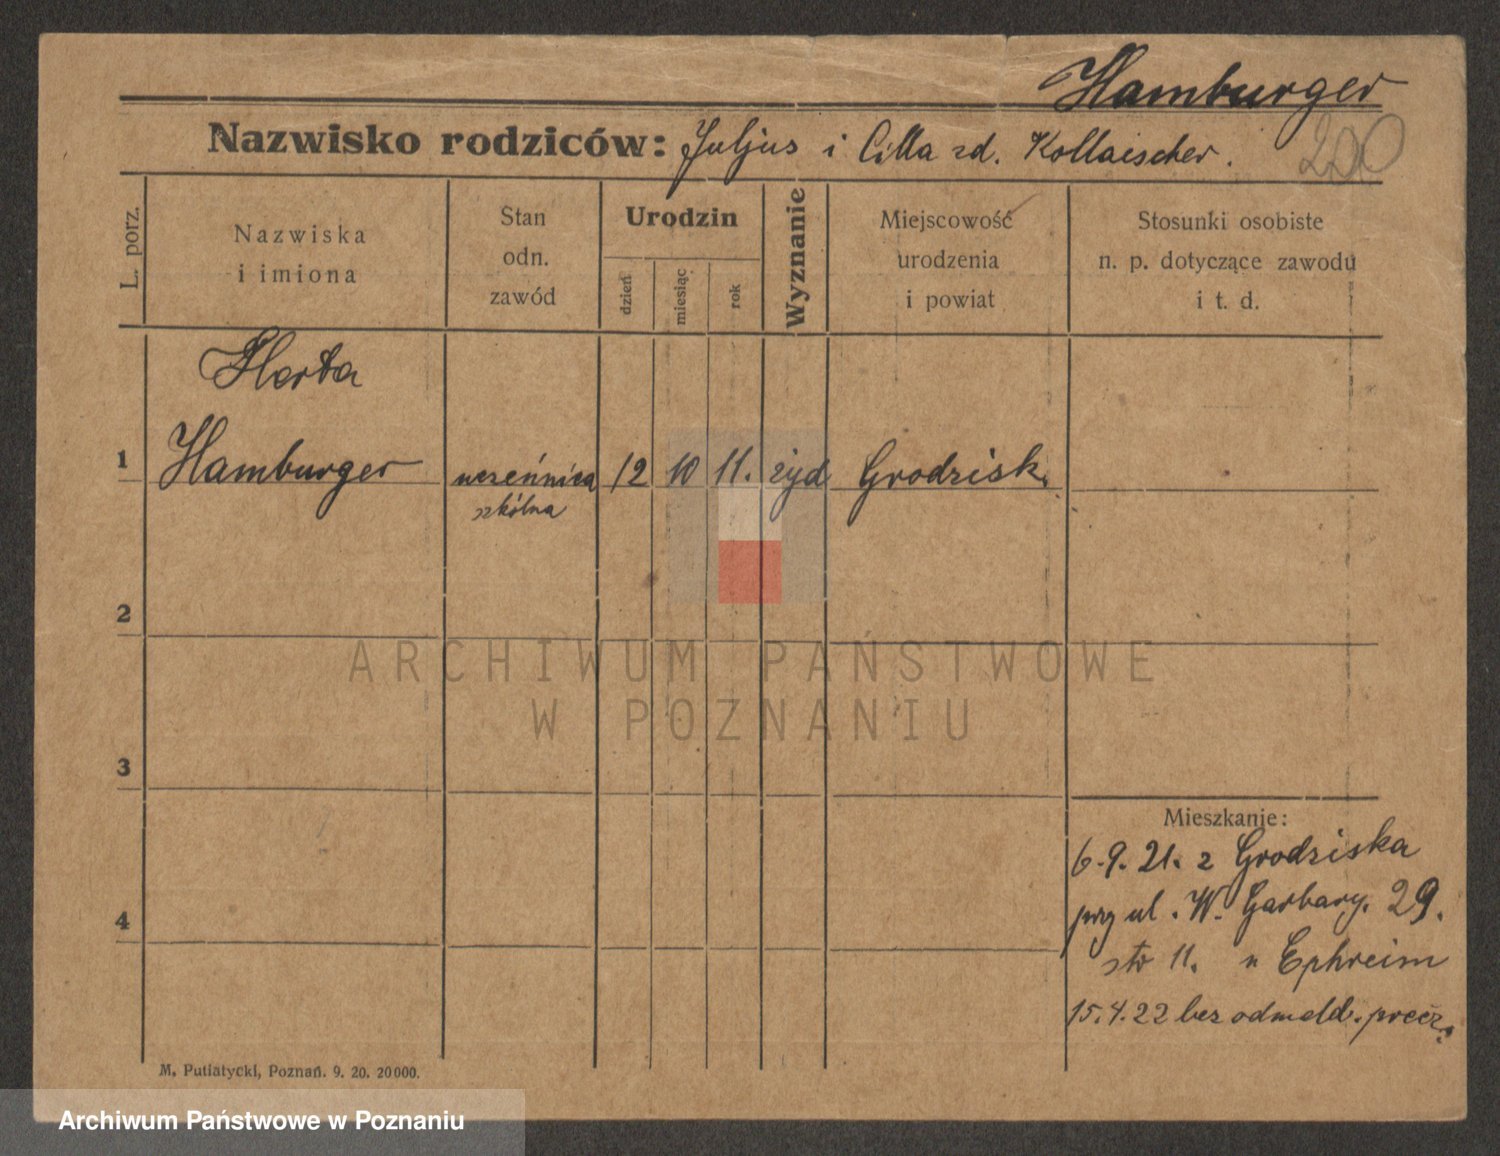 Hamburger
Nazwisko rodziców: Juljus i Cilla zd. Kollaischer.
200
L. porz.
Nazwiska
i imiona
Stan
odn.
zawód
Urodzin
dzień
miesiąc
rok
Wyznanie
Miejscowość
urodzenia
i powiat
Stosunki osobiste
n. p. dotyczące zawodu
i t. d.
Herta
1 Hamburger uczeńnica 12 10 11. żyd Grodzisk.
szkólna
2
ARCHIWUM PAŃSTWOWE
W POZNANIU
3
Mieszkanie:
6.9.21. z Grodziska
przy ul. W. Garbary. 29.
4
str 11. u Ephreim
15.4.22 bez odmeld. precz.
M. Putiatycki, Poznań. 9. 20. 20000.
Archiwum Państwowe w Poznaniu